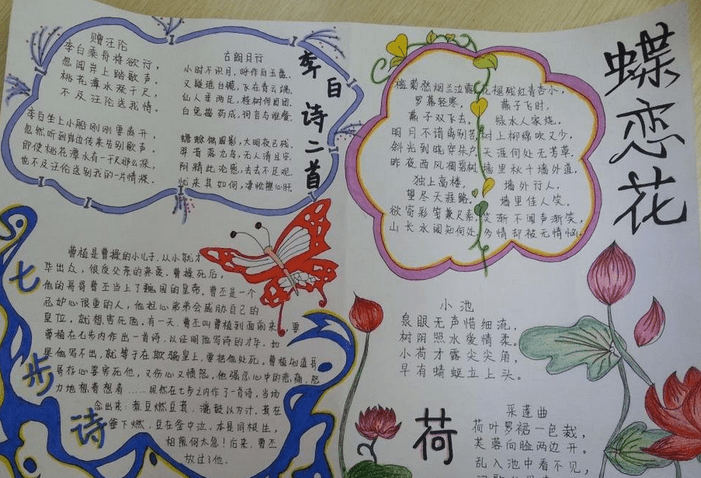 赠汪伦
李白乘舟将欲行，
忽闻岸上踏歌声。
桃花潭水深千尺，
不及汪伦送我情。
李白坐上小船刚刚要离开，
忽然听到岸边传来告别歌声。
即使桃花潭水有一千尺那么深，
也不及汪伦送别我的一片情深。
古朗月行
小时不识月，呼作白玉盘。
又疑瑶台镜，飞在青云端。
仙人垂两足，桂树何团团。
白兔捣药成，问言与谁餐。
蟾蜍蚀圆影，大明夜已残。
羿昔落九乌，天人清且安。
阴精此沦惑，去去不足观。
忧来其如何，凄怆摧心肝。
李白诗二首
蝶恋花
槛菊愁烟兰泣露
罗幕轻寒，
燕子双飞去。
明月不谙离别苦
斜光到晓穿朱户
昨夜西风凋碧树
独上高楼，
望尽天涯路。
欲寄彩笺兼尺素
山长水阔知何处
花褪残红青杏小，
燕子飞时，
绿水人家绕。
枝上柳绵吹又少，
天涯何处无芳草。
墙里秋千墙外道，
墙外行人，
墙里佳人笑。
笑渐不闻声渐笑，
多情却被无情恼。
七步诗
曹植是曹操的小儿子，从小就才
华出众，很受父亲的亲爱。曹操死后，
他的哥哥曹丕当上了魏国的皇帝。曹丕是一个
忌妒心很重的人，他担心弟弟会威胁自己的
皇位，就想害死他。有一天，曹丕叫曹植到面前来，要
曹植在七步内作出一首诗，以证明他写诗的才华。如
果他写不出，就等于在欺骗皇上，要把他处死。曹植知道哥
哥存心要害死他，又伤心又愤怒。他强忍心中的悲痛，努
力地想着想着……果然在七步之内作了一首诗，当场
念出来：煮豆燃豆萁，漉豉以为汁。萁在
釜下燃，豆在釜中泣。本是同根生，
相煎何太急！后来，曹丕
放过了他。
小池
泉眼无声惜细流，
树阴照水爱情柔。
小荷才露尖尖角，
早有蜻蜓立上头。
荷
采莲曲
荷叶罗裙一色裁，
芙蓉向脸两边开。
乱入池中看不见，